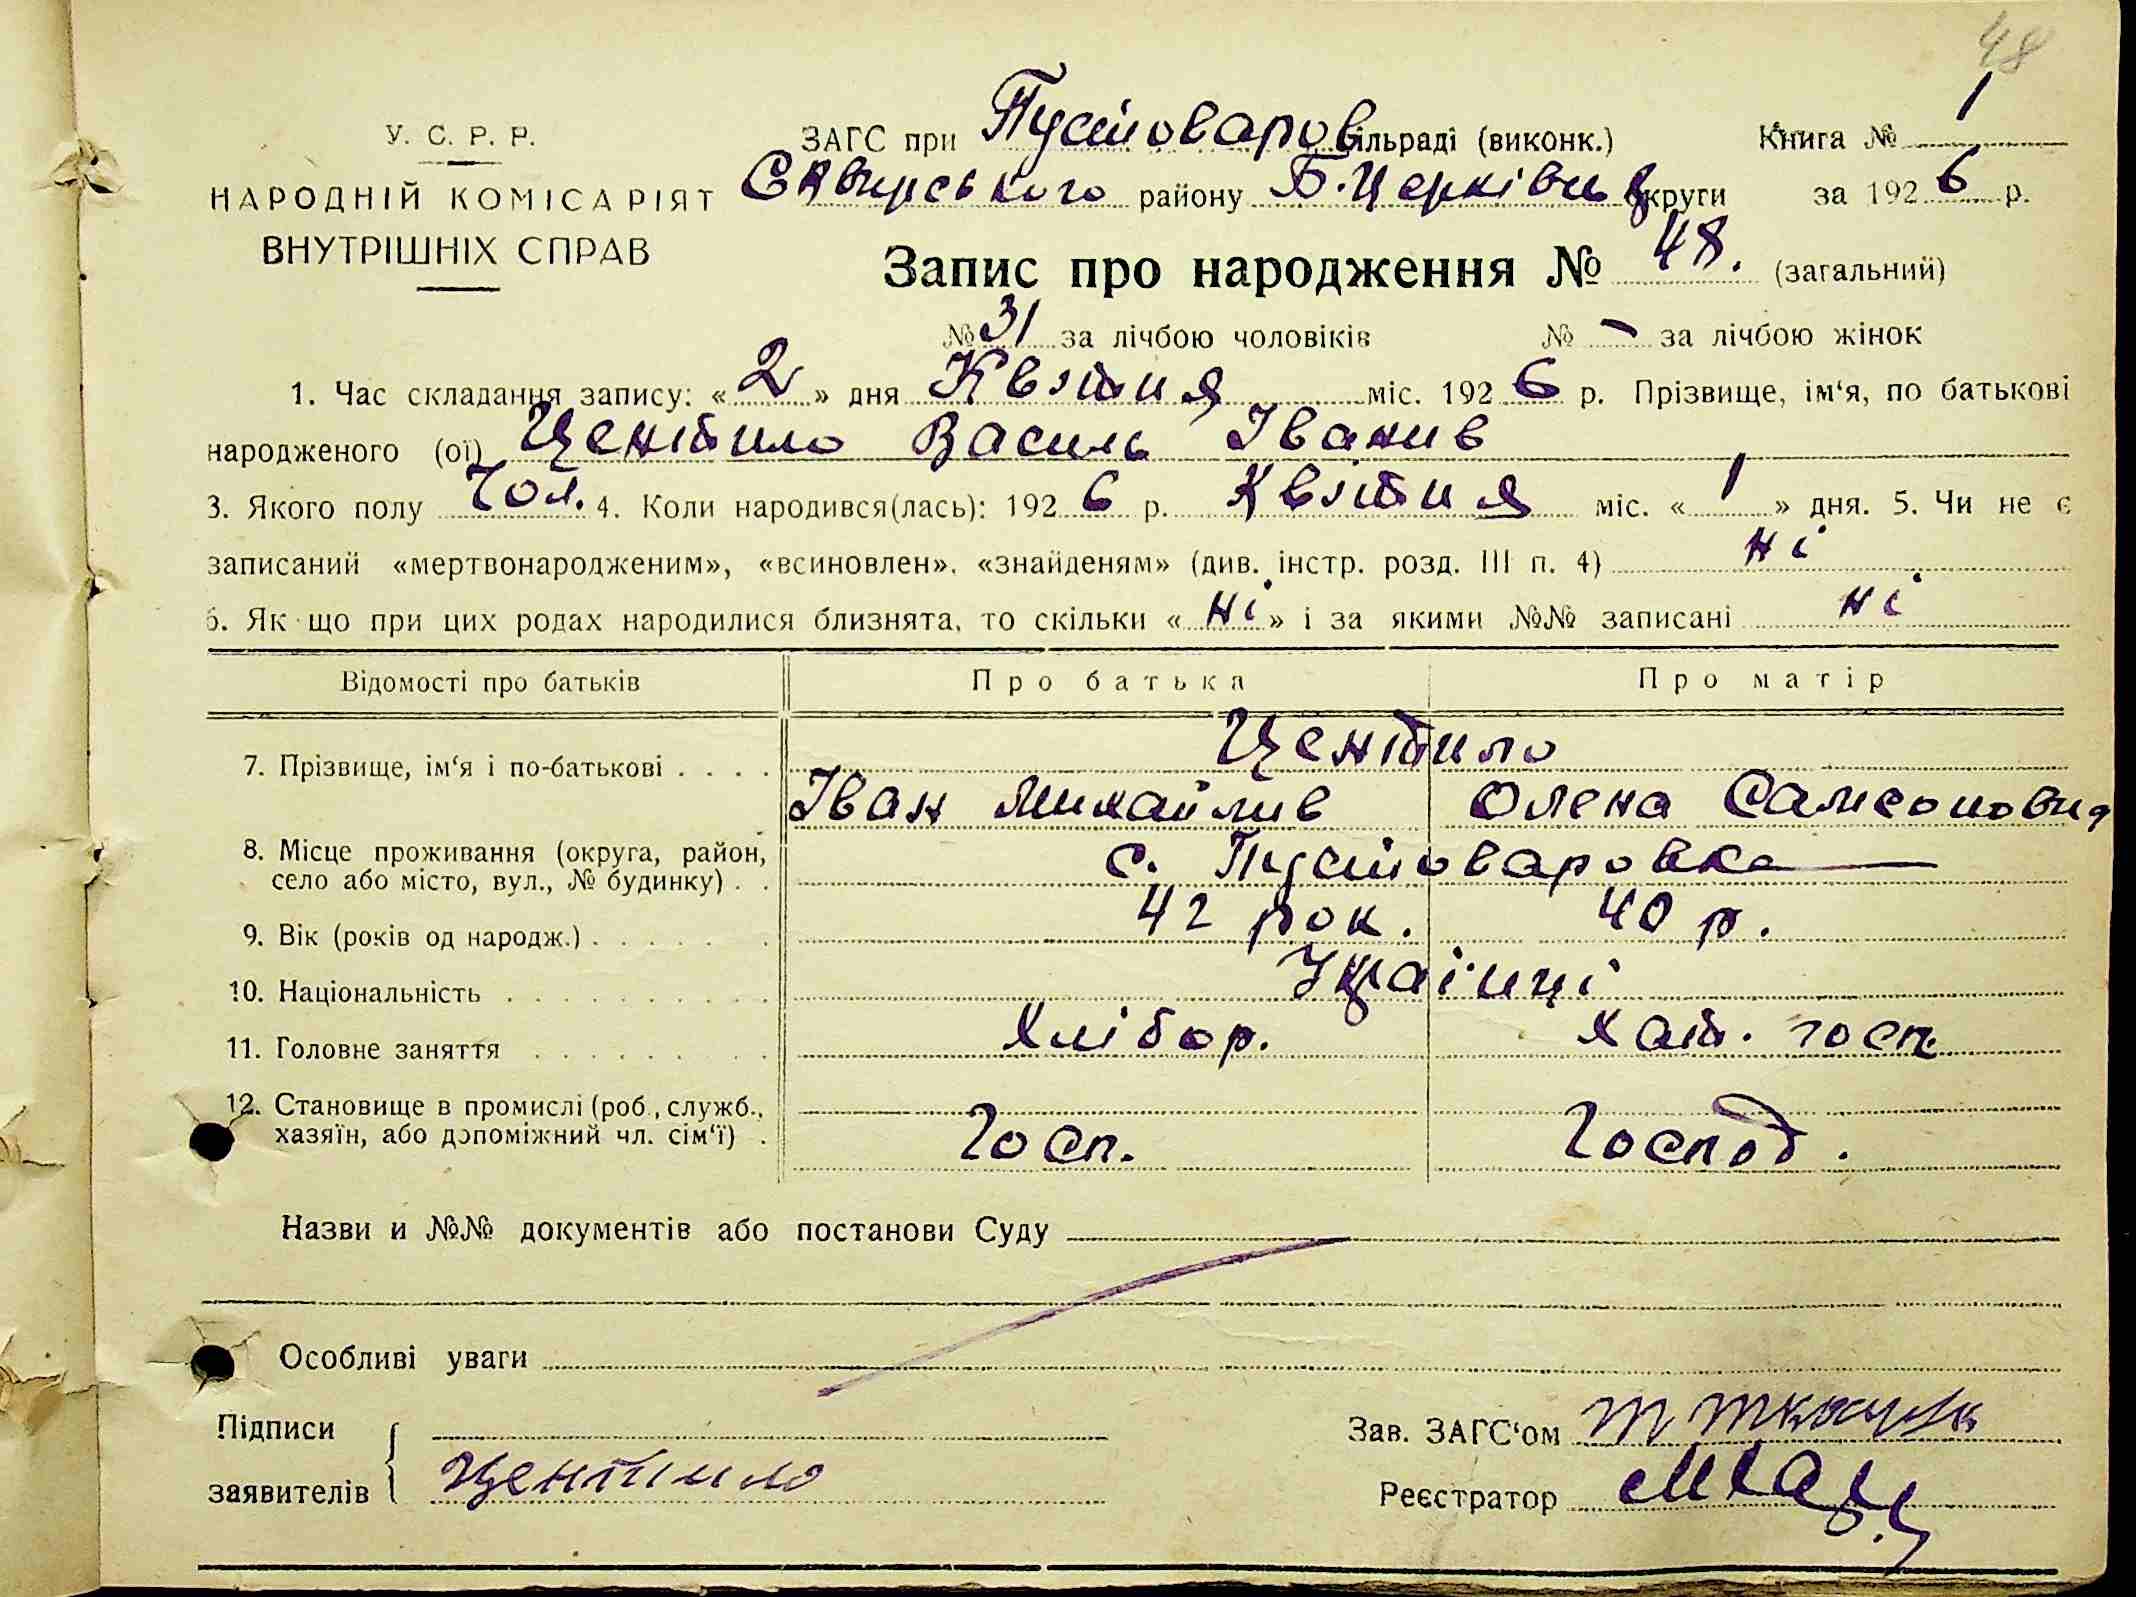 48
У. С. Р. Р.
ЗАГС при Пустоваров сільраді (виконк.) Книга № 1
НАРОДНІЙ КОМІСАРІЯТ Сквирського району Б.Церківщ округи за 1926 р.
ВНУТРІШНІХ СПРАВ
Запис про народження № 48. (загальний)
№ 31 за лічбою чоловіків № – за лічбою жінок
1. Час складання запису: «2» дня Квітня міс. 1926 р. Прізвище, ім‘я, по батькові
народженого (ої) Центило Василь Іванив
3. Якого полу Чол. 4. Коли народився(лась): 1926 р. Квітня міс. «1» дня. 5. Чи не є
записаний «мертвонародженим», «всиновлен», «знайденям» (див. інстр. розд. III п. 4) ні
6. Як що при цих родах народилися близнята, то скільки «ні» і за якими №№ записані ні
Відомості про батьків Про батька Про матір
7. Прізвище, ім‘я і по-батькові . . . . Центило
Іван Михайлив Олена Самсоновна
8. Місце проживання (округа, район,
село або місто, вул., № будинку) . . с. Пустоваровка
9. Вік (років од народж.) . . . . . . 42 рок. 40 р.
10. Національність . . . . . . . . . . Українці
11. Головне заняття . . . . . . . . Хлібор. Хат. госп.
12. Становище в промислі (роб., служб.,
хазяїн, або допоміжний чл. сім‘ї) . Госп. Господ.
Назви и №№ документів або постанови Суду
Особливі уваги
Підписи Зав. ЗАГС‘ом
заявителів Центило Реєстратор